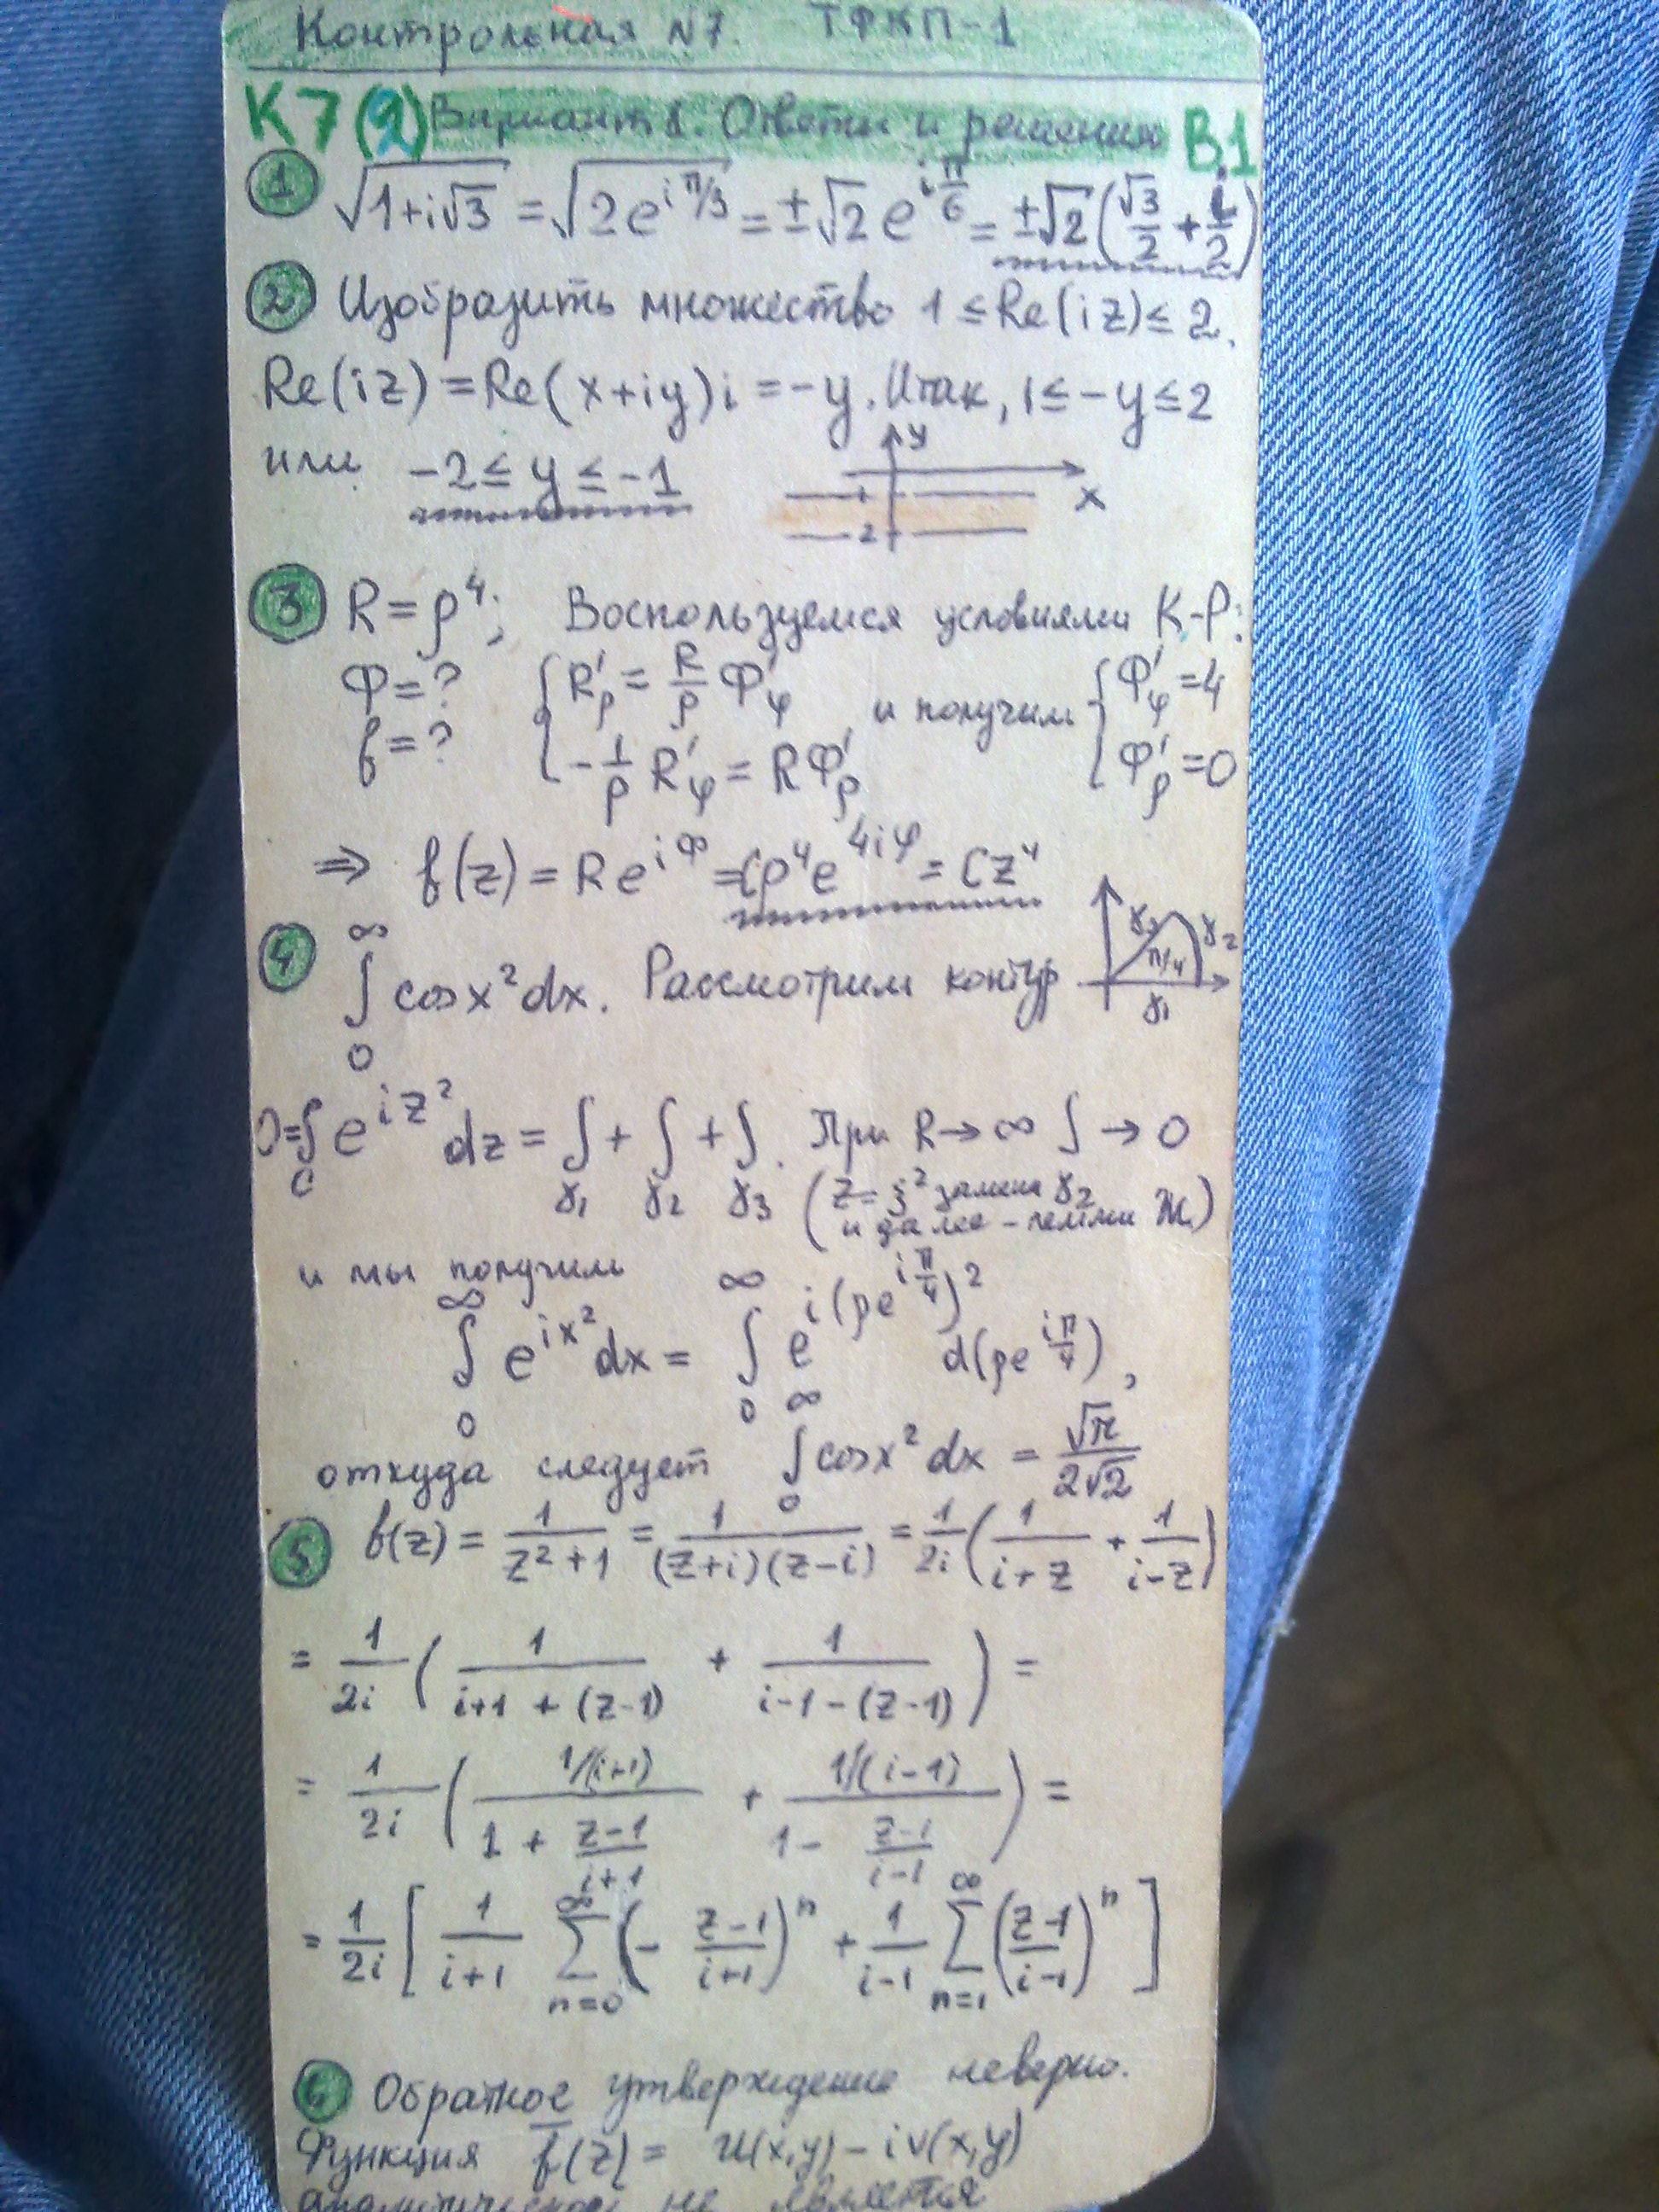 Контрольная №7. ТФКП-1
К7(2) Вариант 1. Ответы и решения В.1
① √(1+i√3) = √(2e^{iπ/3}) = ±√2 e^{iπ/6} = ±√2(√3/2 + i/2)
② Изобразить множество 1 ≤ Re(iz) ≤ 2.
Re(iz) = Re(x+iy)i = -y. Итак, 1 ≤ -y ≤ 2
или -2 ≤ y ≤ -1
y
x
1
2
③ R = ρ⁴; Воспользуемся условиями К-Р:
Φ = ? { R'_ρ = R/ρ Φ'_φ и получим { Φ'_φ = 4
f = ? { -1/ρ R'_φ = RΦ'_ρ { Φ'_ρ = 0
⇒ f(z) = Re^{iΦ} = Cρ⁴e^{4iφ} = Cz⁴
④ ∫₀^∞ cos x² dx. Рассмотрим контур
γ₃ γ₂
π/4
γ₁
0 = ∫_C e^{iz²} dz = ∫_{γ₁} + ∫_{γ₂} + ∫_{γ₃}. При R → ∞ ∫_{γ₂} → 0
(z = ξ² замена
и далее - лемма Ж.)
и мы получим
∫₀^∞ e^{ix²} dx = ∫₀^∞ e^{i(ρe^{iπ/4})²} d(ρe^{iπ/4}),
откуда следует ∫₀^∞ cos x² dx = √π/(2√2)
⑤ f(z) = 1/(z²+1) = 1/((z+i)(z-i)) = 1/2i (1/(i+z) + 1/(i-z))
= 1/2i (1/(i+1+(z-1)) + 1/(i-1-(z-1))) =
= 1/2i ((1/(i+1))/(1 + (z-1)/(i+1)) + (1/(i-1))/(1 - (z-1)/(i-1))) =
= 1/2i [1/(i+1) ∑_{n=0}^∞ (- (z-1)/(i+1))^n + 1/(i-1) ∑_{n=1}^∞ ((z-1)/(i-1))^n]
⑥ Обратное утверждение неверно.
Функция f̄(z) = u(x,y) - iv(x,y)
аналитической не является